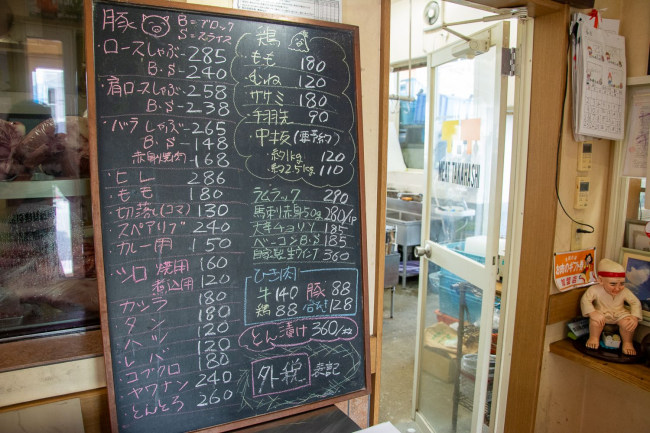 豚 B=ブロック
S=スライス
・ロースしゃぶ 285
B・S 240
・肩ロースしゃぶ 258
B・S 238
・バラ しゃぶ 265
B・S 148
赤身焼肉 168
・ヒレ 286
・もも 180
・切落し(コマ) 130
・スペアリブ 240
・カレー用 150
・シロ 焼用 160
煮込用 120
・カシラ 180
・タン 180
・ハツ 120
・レバ 120
・コブクロ 180
・ヤワナン 240
・とんとろ 260
鶏
・もも 180
・むね 120
・ササミ 180
・手羽先 90
・中抜(要予約)
約1kg 120
約2.5kg 110
・ラムラック 290
・馬刺赤身50g 280/1P
・大辛チョリソ 185
・ベーコンB・S 185
・自家製生ウインナ 360
ひき肉
牛 140 豚 88
鶏 88 合挽き 128
とん漬け 360/枚
外税 表記
MEAT TAKAHASHI